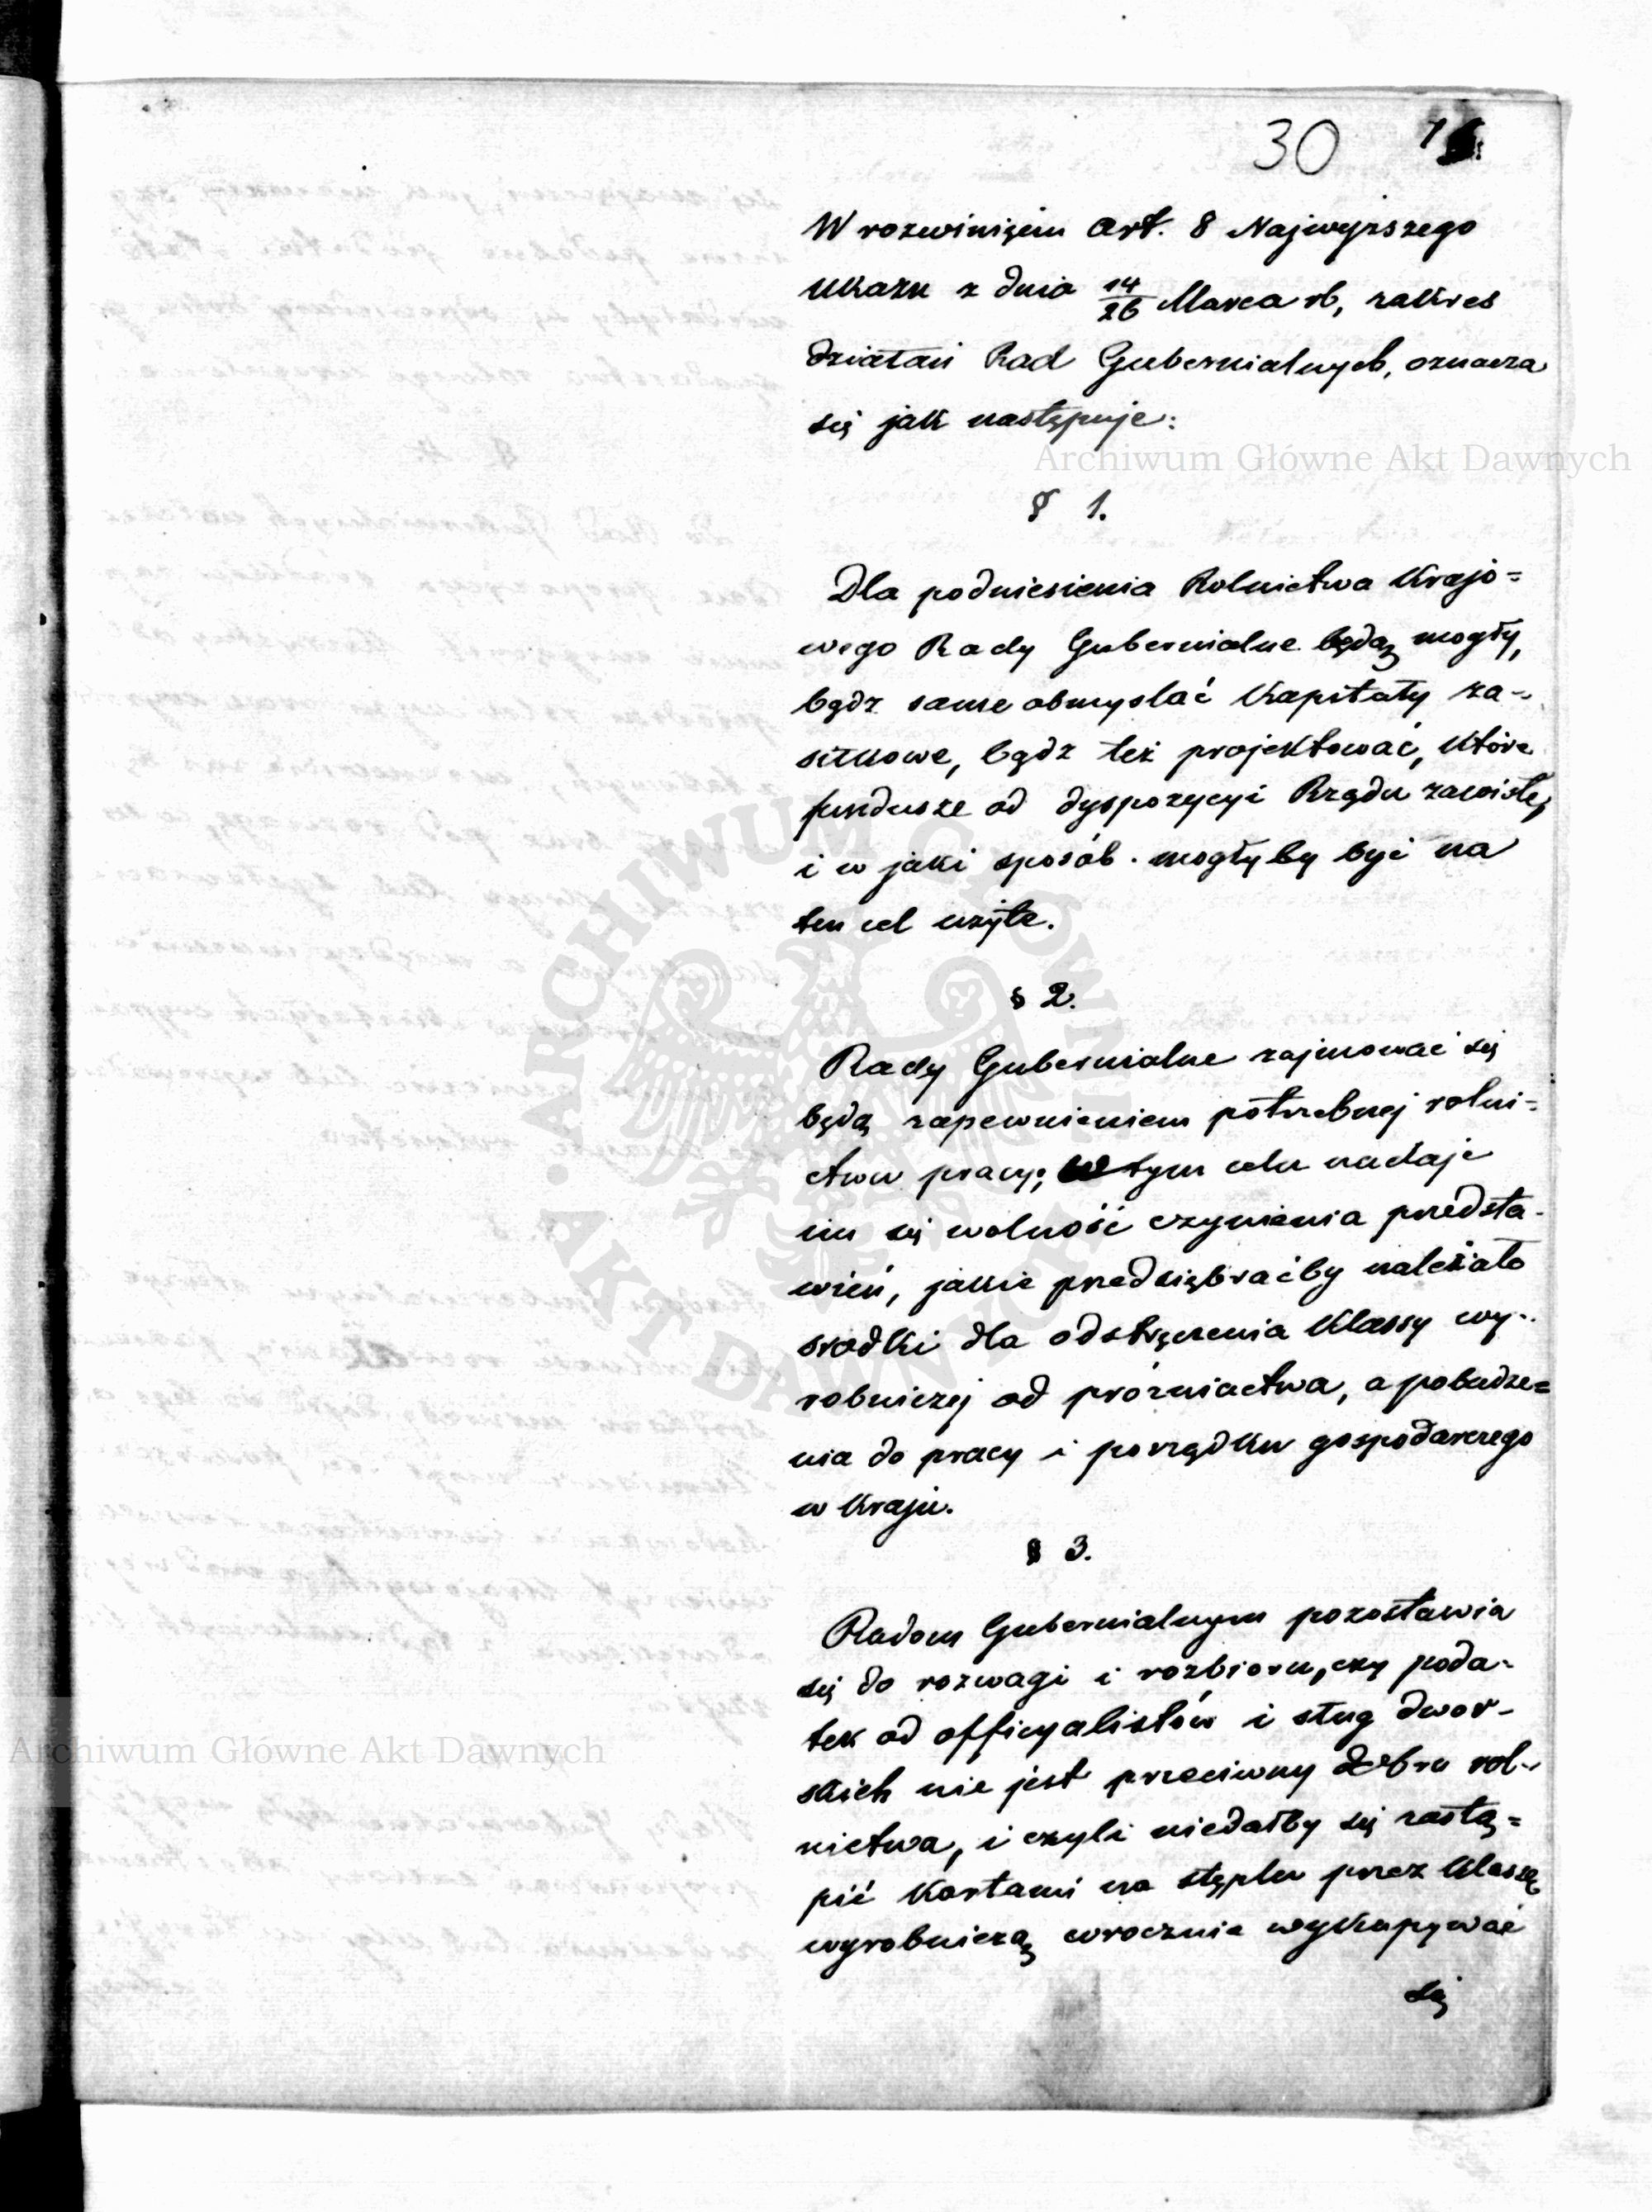 30 16
W rozwinięciu Art. 8 Najwyższego
Ukazu z dnia 14/26 Marca rb, zakres
działań Rad Gubernialnych, oznacza
się jak następuje:
Archiwum Główne Akt Dawnych
§ 1.
Dla podniesienia Rolnictwa Krajo=
wego Rady Gubernialne będą mogły,
bądz same obmyslać Kapitały za-
siłkowe, bądz też projektować, które
fundusze od dyspozycyi Rządu zawisłe,
i w jaki sposób mogłyby być na
ten cel użyte.
§ 2.
Rady Gubernialne zajmować się
będą zapewnieniem potrzebnej rolni-
ctwu pracy; w tym celu nadaje
im się wolność czynienia przedsta-
wień, jakie przedsiębraćby należało
srodki dla odstręczenia Klassy wy-
robniczej od próżniactwa, a pobudze=
nia do pracy i porządku gospodarczego
w Kraju.
§ 3.
Radom Gubernialnym pozostawia
się do rozwagi i rozbioru, czy poda-
tek od officyalistów i sług dwor-
skich nie jest przeciwny dobru rol-
nictwa, i czyli niedałby się zastą=
pić Kartami na stęplu przez Klassę
wyrobniczą corocznie wykupywać
się
Archiwum Główne Akt Dawnych
ARCHIWUM GŁÓWNE AKT DAWNYCH